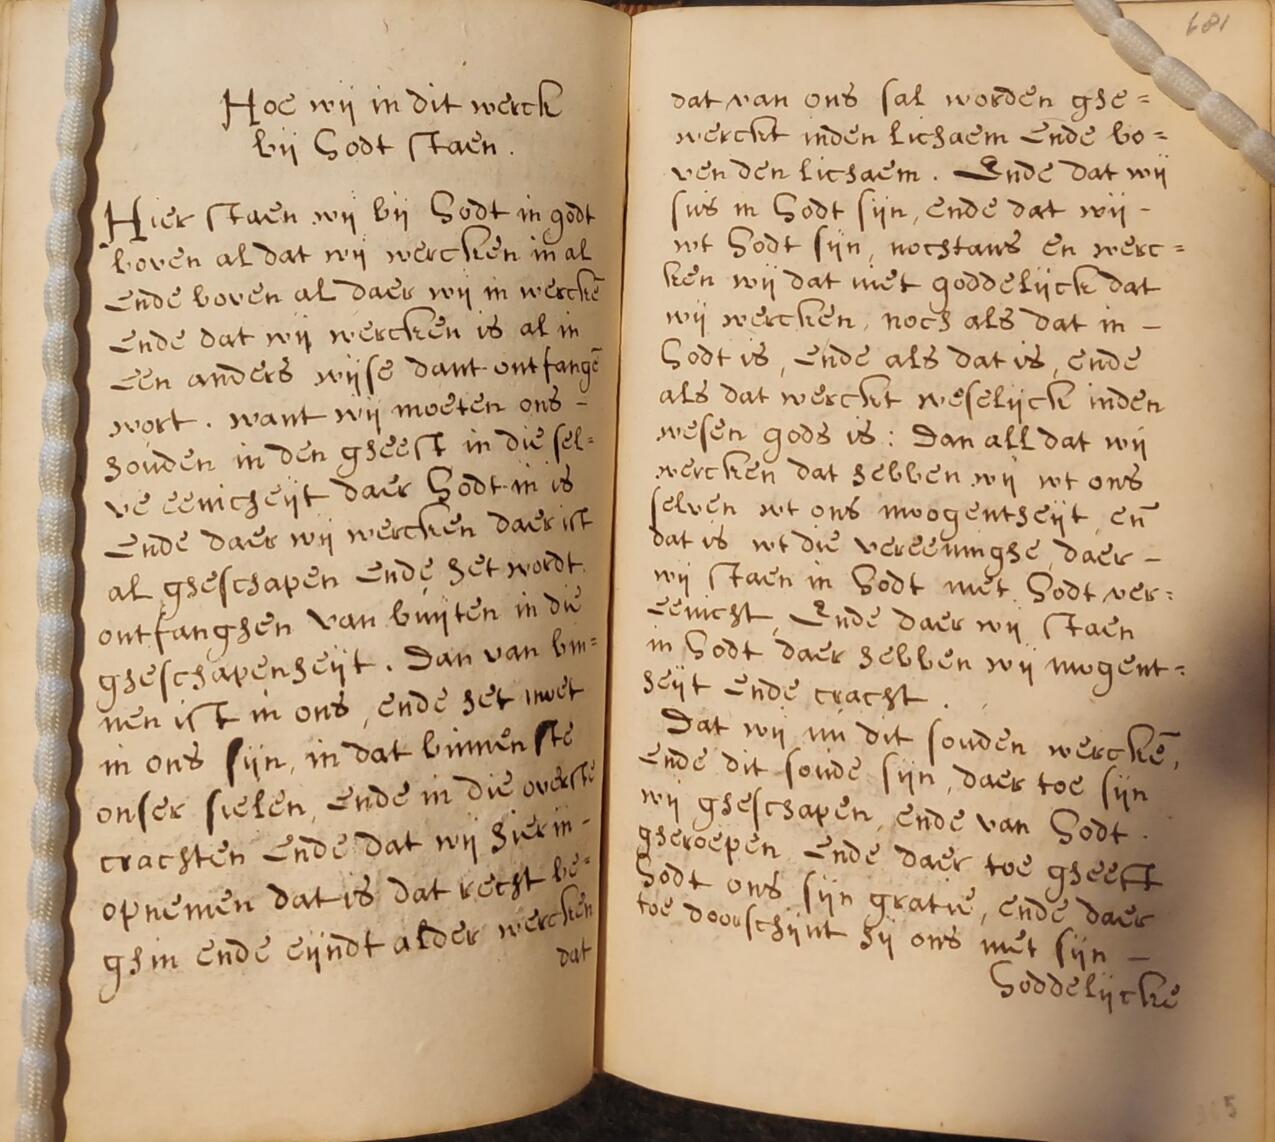 Hoe wij in dit werck
bij Godt staen.
Hier staen wij bij Godt in godt
boven al dat wij wercken in al
Ende boven al daer wij in werckē
Ende dat wij wercken is al in
Een anders wijse dant ontfangē
wort. want wij moeten ons -
houden in den gheest in die sel=
ve eenicheijt daer Godt in is
Ende daer wij wercken daer ist
al gheschapen Ende het wordt
ontfanghen van buijten in die
gheschapenheijt. Dan van bin=
nen ist in ons, ende het moet
in ons sijn, in dat binnenste
onser sielen, Ende in die overste
crachten Ende dat wij hier in -
opnemen dat is dat recht be=
ghin ende eijndt alder wercken
dat
681
dat van ons sal worden ghe=
werckt inden lichaem Ende bo=
ven den lichaem. Ende dat wij
sus in Godt sijn, ende dat wij -
wt Godt sijn, nochtans en werc=
ken wij dat niet goddelijck dat
wij wercken, noch als dat in -
Godt is, Ende als dat is, ende
als dat werckt weselijck inden
wesen gods is: Dan all dat wij
wercken dat hebben wij wt ons
selven wt ons moogentheijt, eñ
dat is wt die vereeninghe, daer -
wij staen in Godt met Godt ver=
eenicht, Ende daer wij staen
in Godt daer hebben wij mogent=
heijt Ende cracht.
Dat wij nú dit souden werckē,
Ende dit soude sijn, daer toe sijn
wij gheschapen, ende van Godt.
gheroepen Ende daer toe gheeft
Godt ons sijn gratie, ende daer
toe doorschijnt hij ons met sijn -
Goddelijcke
365